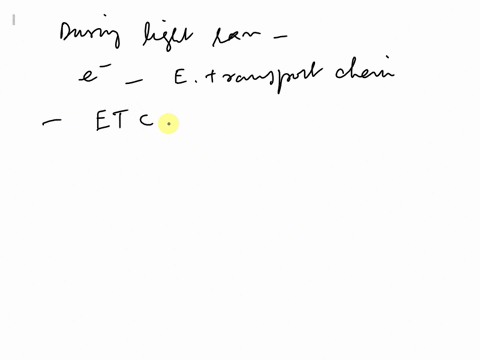 During light rxn -
e⁻ - E. transport chain
- ETC.